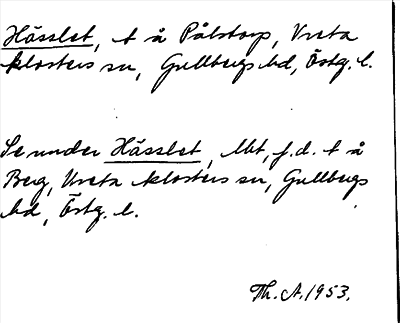 Hässlet, t å Pålstorp, Vreta
klosters sn, Gullbergs hd, Östg. l.
Se under Hässlet, lht, f.d. t å
Berg, Vreta klosters sn, Gullbergs
hd, Östg. l.
Th. A. 1953.